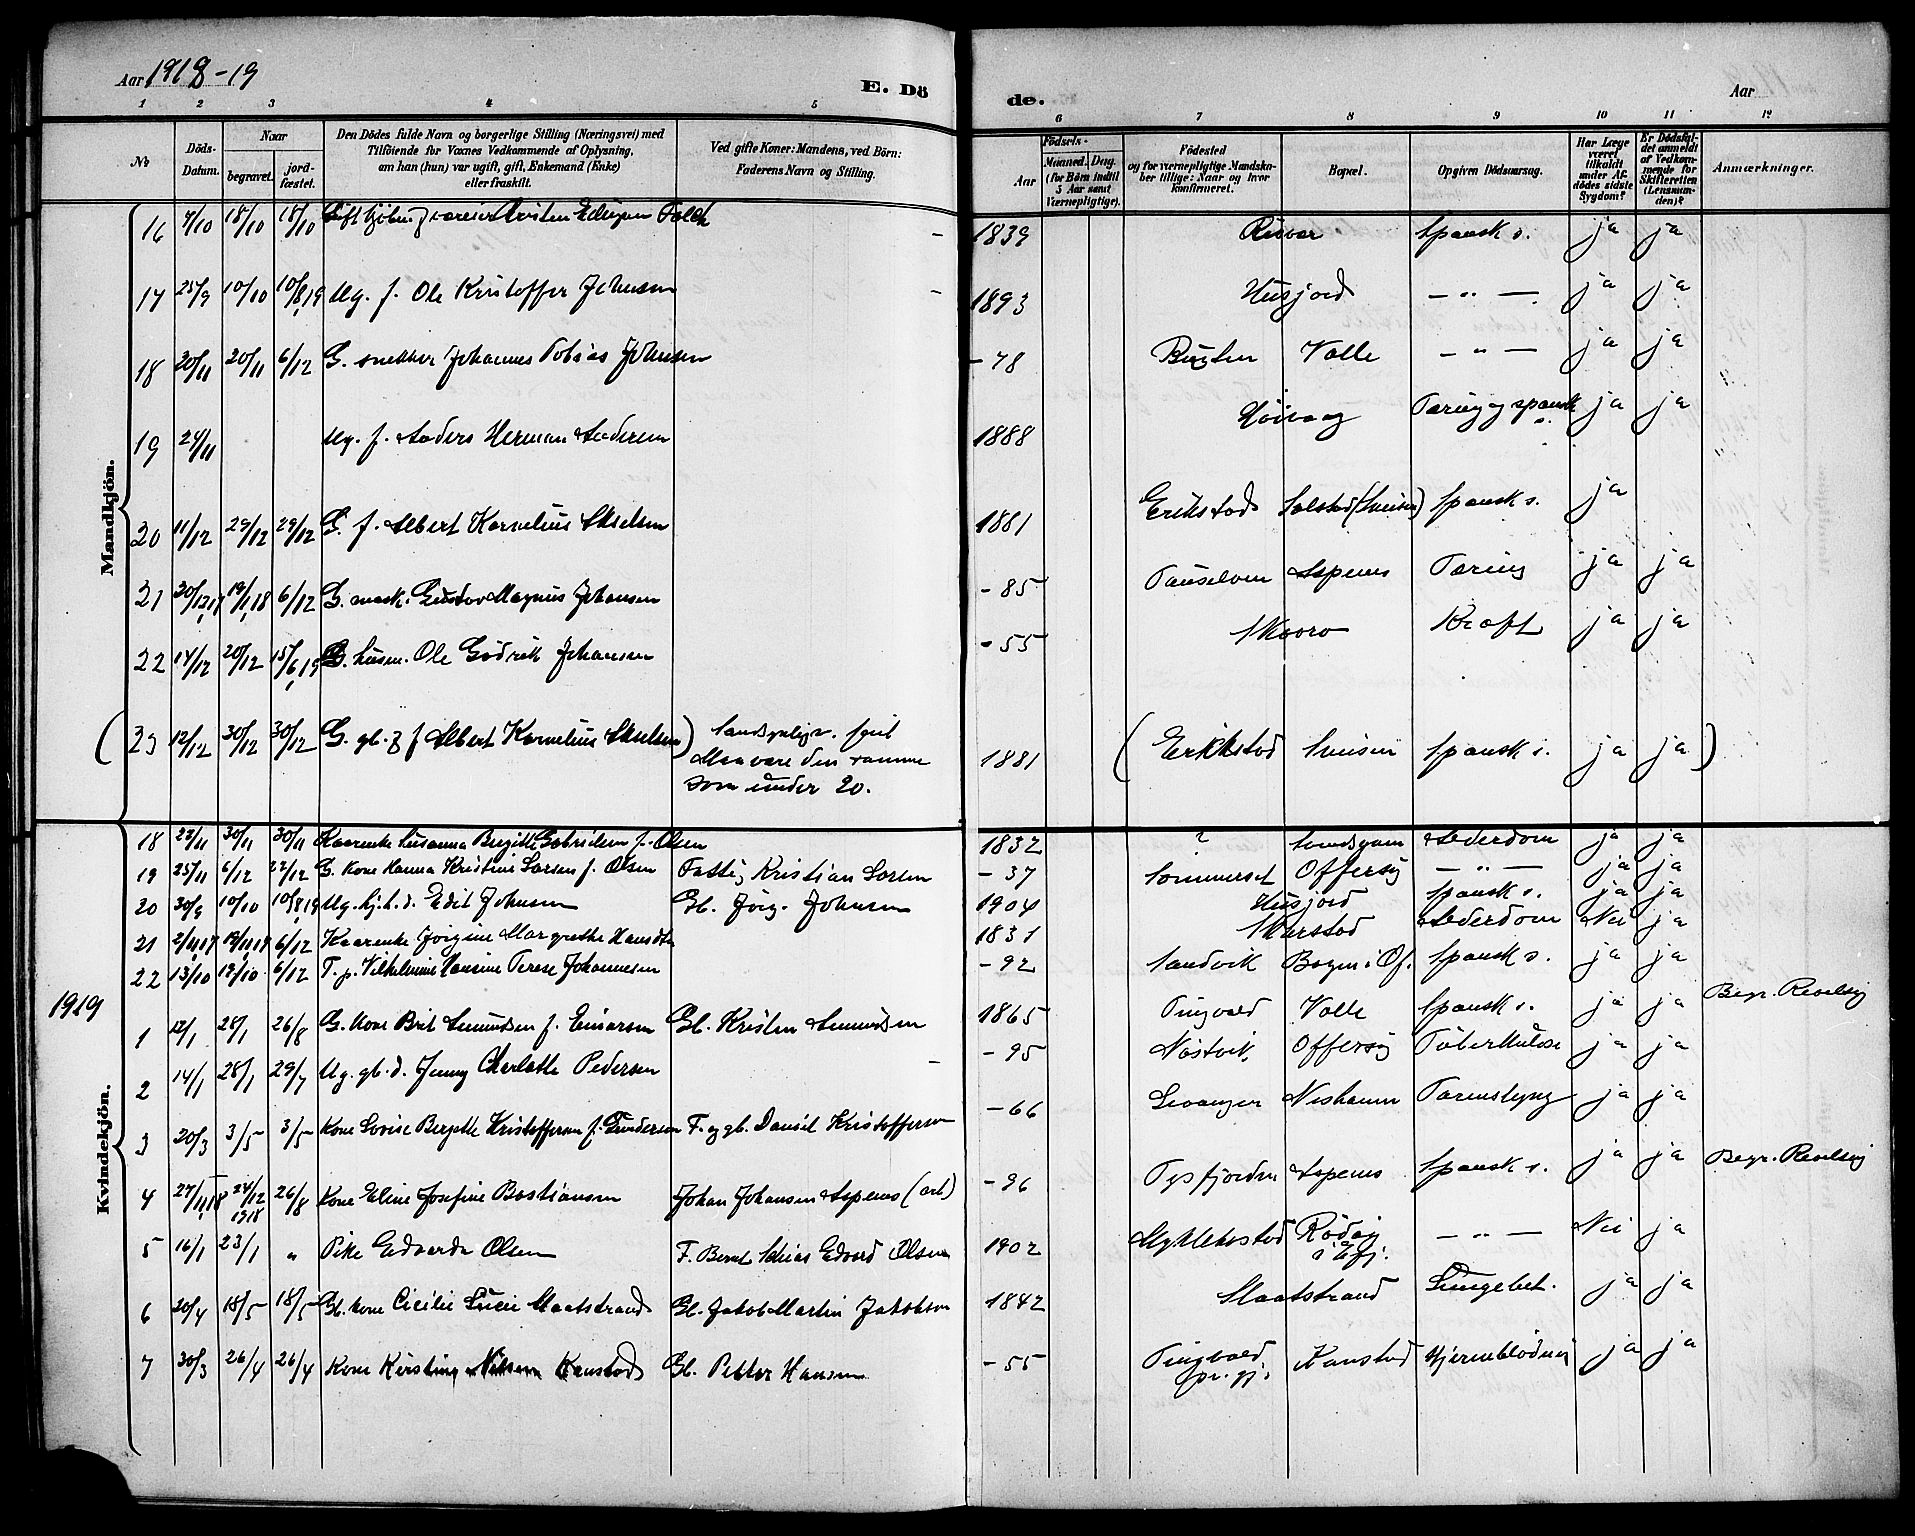 Aar 1918-19
E. Dö
de.
Aar
1 2 3 4 5 6 7 8 9 10 11 12
No
Döds-Datum.
Naar
begravet.
jord-fæstet.
Den Dödes fulde Navn og borgerlige Stilling (Næringsvei) med
Tilföiende for Voxnes Vedkommende af Oplysning,
om han (hun) var ugift, gift, Enkemand (Enke)
eller fraskilt.
Ved gifte Koner: Mandens, ved Börn:
Faderens Navn og Stilling.
Födsels-
Aar
Maaned. Dag.
(for Börn indtil
5 Aar samt
Værnepligtige).
Födested
og for værnepligtige Mandska-
ber tillige: Naar og hvor
konfirmeret.
Bopæl.
Opgiven Dödsaarsag.
Har Læge
været
tilkaldt
under Af-
dödes sidste
Sygdom?
Er Dödsfal-
det anmeldt
af Vedkom-
mende for
Skifteretten
(Lensman-
den)?
Anmærkninger.
Mandkjön.
16 7/10 18/10 18/10 - 1839 Risvær Spansk s. ja ja
17 25/9 10/10 10/8,19 Ug. f. Ole Kristoffer Johnsen - 1893 Husjord — " — ja ja
18 20/11 20/11 6/12 G. snekker Johannes Tobias Johnsen - 78 Valle — " — ja ja
19 24/11 Ug. f. Anders Herman Andersen 1888 Tæring og spansk s. ja ja
20 11/12 29/12 29/12 G. f. Albert Kornelius Akselsen 1881 Erikstad Spansk s. ja
21 30/12,17 19/1,18 6/12 G. mask. Gustav Magnus Johansen - 85 Aspenes Tæring ja ja
22 14/12 20/12 15/6,19 G. husm. Ole Godrik Johansen - 55 Skaaro Kræft ja ja
( 23 12/12 30/12 30/12 G. gb. & f Albert Kornelius Akselsen ) Sandsynligv. feil 1881 ( Erikstad Spansk s. ja ja )
Maa være den samme
som under 20.
Kvindekjön.
18 23/11 30/11 30/11 Kaarenke Susanna Birgitte Gabrielsen f. Olsen 1832 ? Alderdom ja ja
19 25/11 6/12 22/12 G. Kone Hanna Kristine Larsen f. Olsen Fattig Kristian Larsen - 37 Sommerset Offersøy — " — ja ja
20 30/9 10/10 10/8,19 Ug. hj. h. d. Edit Johnsen Gb. Jørg. Johnsen 1904 Husjord Spansk s. ja ja
21 2/11,17 6/12 Kaarenke Jørgine Margrethe Hansdtr 1831 Skarstad Alderdom Nei ja
22 13/10 19/10 6/12 T. p. Vilhelmine Hansine Terese Johannesen - 92 Sandvik Bogen i Of. Spansk s. ja ja
1919
1 12/1 28/1 26/8 G. Kone Brit Amundsen f. Einarsen Gb. Kristen Amundsen 1865 Tingvold Valle Spansk s. ja ja Begr. Revelsøy
2 14/1 28/1 29/7 Ug. gb. d. Jenny Charlotte Pedersen - - 95 Nøstvik Offersøy Tuberkulose ja ja
3 20/3 3/5 3/5 Kone Lovise Bergitte Kristoffersen f. Gundersen F. og gb. Daniel Kristoffersen - 66 Levanger ja ja
4 27/11,18 24/12 1918 26/8 Kone Eline Josefine Bastiansen Johan Johansen Aspenes (arb) - 96 Tysfjorden Aspenes Spansk s. ja ja Begr. Revelsøy
5 16/1 23/1 " Pike Edvarda Olsen F. Bernt Edvard Olsen 1902 Myklebostad Rødøy — " — Nei ja
6 20/4 18/5 18/5 Gb. kone Cicilie Lucie Slaatstrand Gb. Jakob Martin Jakobsen 1842 Slaatstrand Lungebet. ja ja
7 30/3 26/4 26/4 Kone Kirstine Nilsen Kanstad Gb. Petter Hansen - 55 Tingvold pr. gj. Kanstad Hjerneblødning ja ja